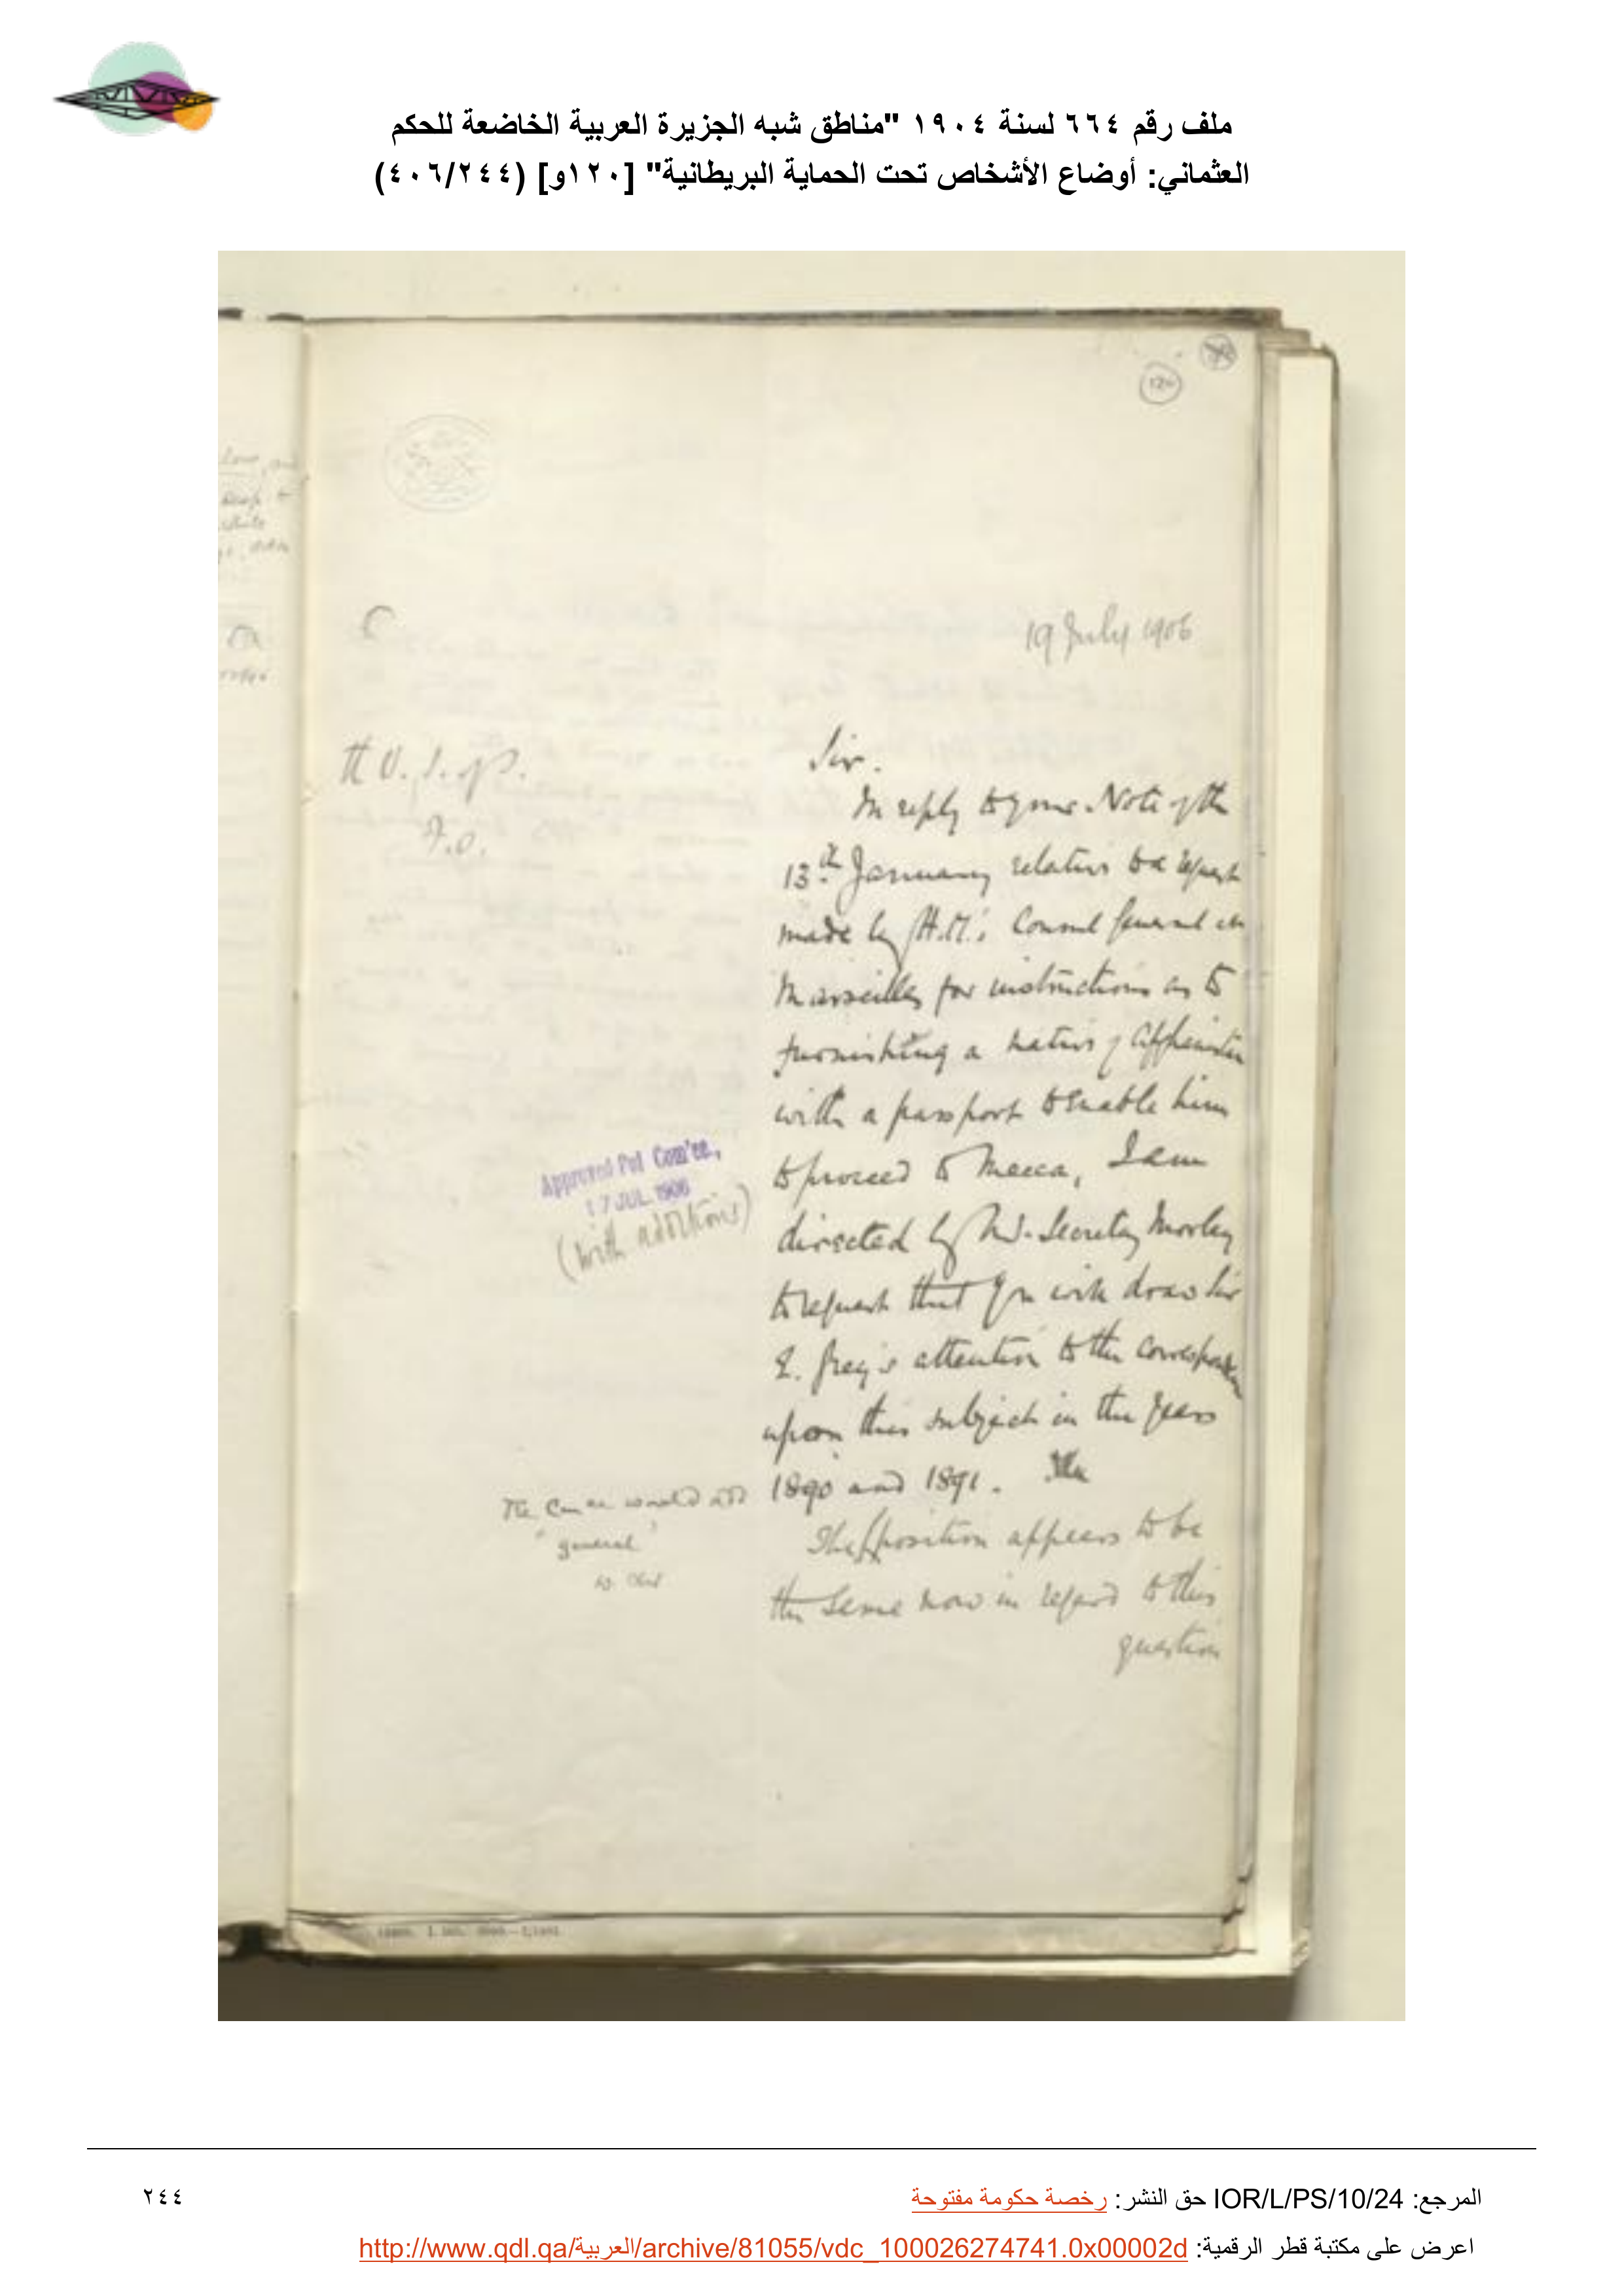 ملف رقم ٦٦٤ لسنة ١٩٠٤ "مناطق شبه الجزيرة العربية الخاضعة للحكم
العثماني: أوضاع الأشخاص تحت الحماية البريطانية" [١٢٠و] (٤٠٦/٢٤٤)
120
19 July 1906
F.O.
Sir.
In reply to your Note of the
13th January relative to a request
made by H.M.'s Consul General in
Marseilles for instructions as to
furnishing a native of Afghanistan
with a passport to enable him
to proceed to Mecca, I am
directed by Mr. Secretary Morley
to request that you will draw Sir
E. Grey's attention to the correspondence
upon this subject in the years
1890 and 1891. The
The position appears to be
the same now in regard to this
question
Approved Pol Com'ee.,
17 JUL 1906
(with additions)
would add
"general"
المرجع: IOR/L/PS/10/24 حق النشر: رخصة حكومة مفتوحة
٢٤٤
اعرض على مكتبة قطر الرقمية: http://www.qdl.qa/العربية/archive/81055/vdc_100026274741.0x00002d